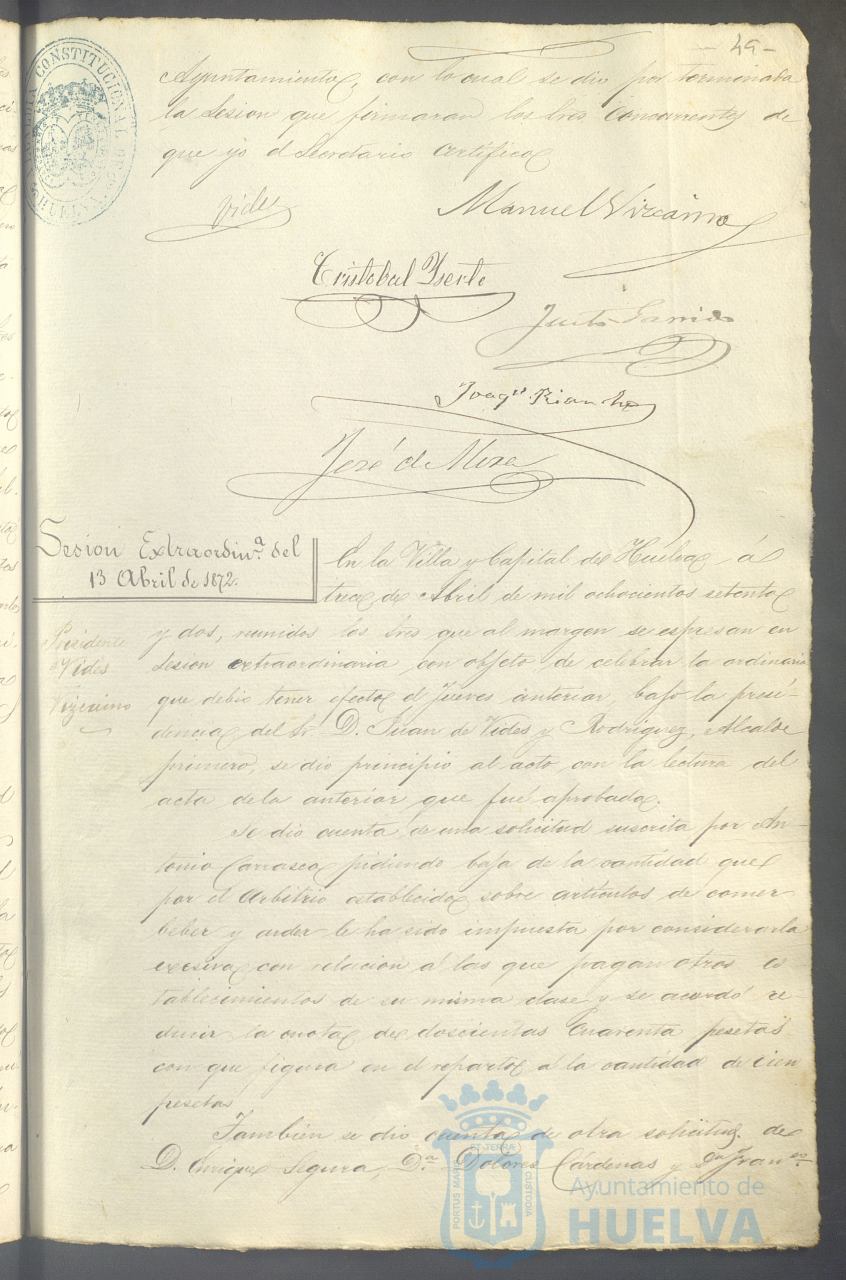 - 49 -
ALCALDIA CONSTITUCIONAL DE
HUELVA
Ayuntamiento, con lo cual se dio por terminada
la Sesion que firmaran los Sres. Concurrentes de
que yo el Secretario certifico
Vides
Manuel Vizcaino
Cristobal Yserte
Justo Garrido
Joaqn. Riancho
José de Mora
Sesion Extraordina. del
13 Abril de 1872.
Presidente
Vides
Vizcaino
En la Villa y Capital de Huelva á
trece de Abril de mil ochocientos setenta
y dos, reunidos los Sres que al margen se espresan en
Sesion extraordinaria con objeto de celebrar la ordinaria
que debio tener efecto el Jueves anterior, bajo la presi-
dencia del Sr. D. Juan de Vides y Rodriguez, Alcalde
primero, se dio principio al acto con la lectura del
acta de la anterior que fué aprobada.
Se dio cuenta de una solicitud suscrita por An-
tonio Carrasco pidiendo baja de la cantidad que
por el Arbitrio establecido sobre articulos de comer
beber y arder le ha sido impuesta por considerarla
excesiva con relacion á las que pagan otros es
tablecimientos de su misma clase y se acordó re-
ducir la cuota de doscientas Cuarenta pesetas
con que figura en el reparto á la cantidad de cien
pesetas
Tambien se dio cuenta de otra solicitud de
D. Enrique Segura, Da. Dolores Cárdenas y Dn Franco.
PORTUS MARIS
ET TERRÆ
CUSTODIA
Ayuntamiento de
HUELVA